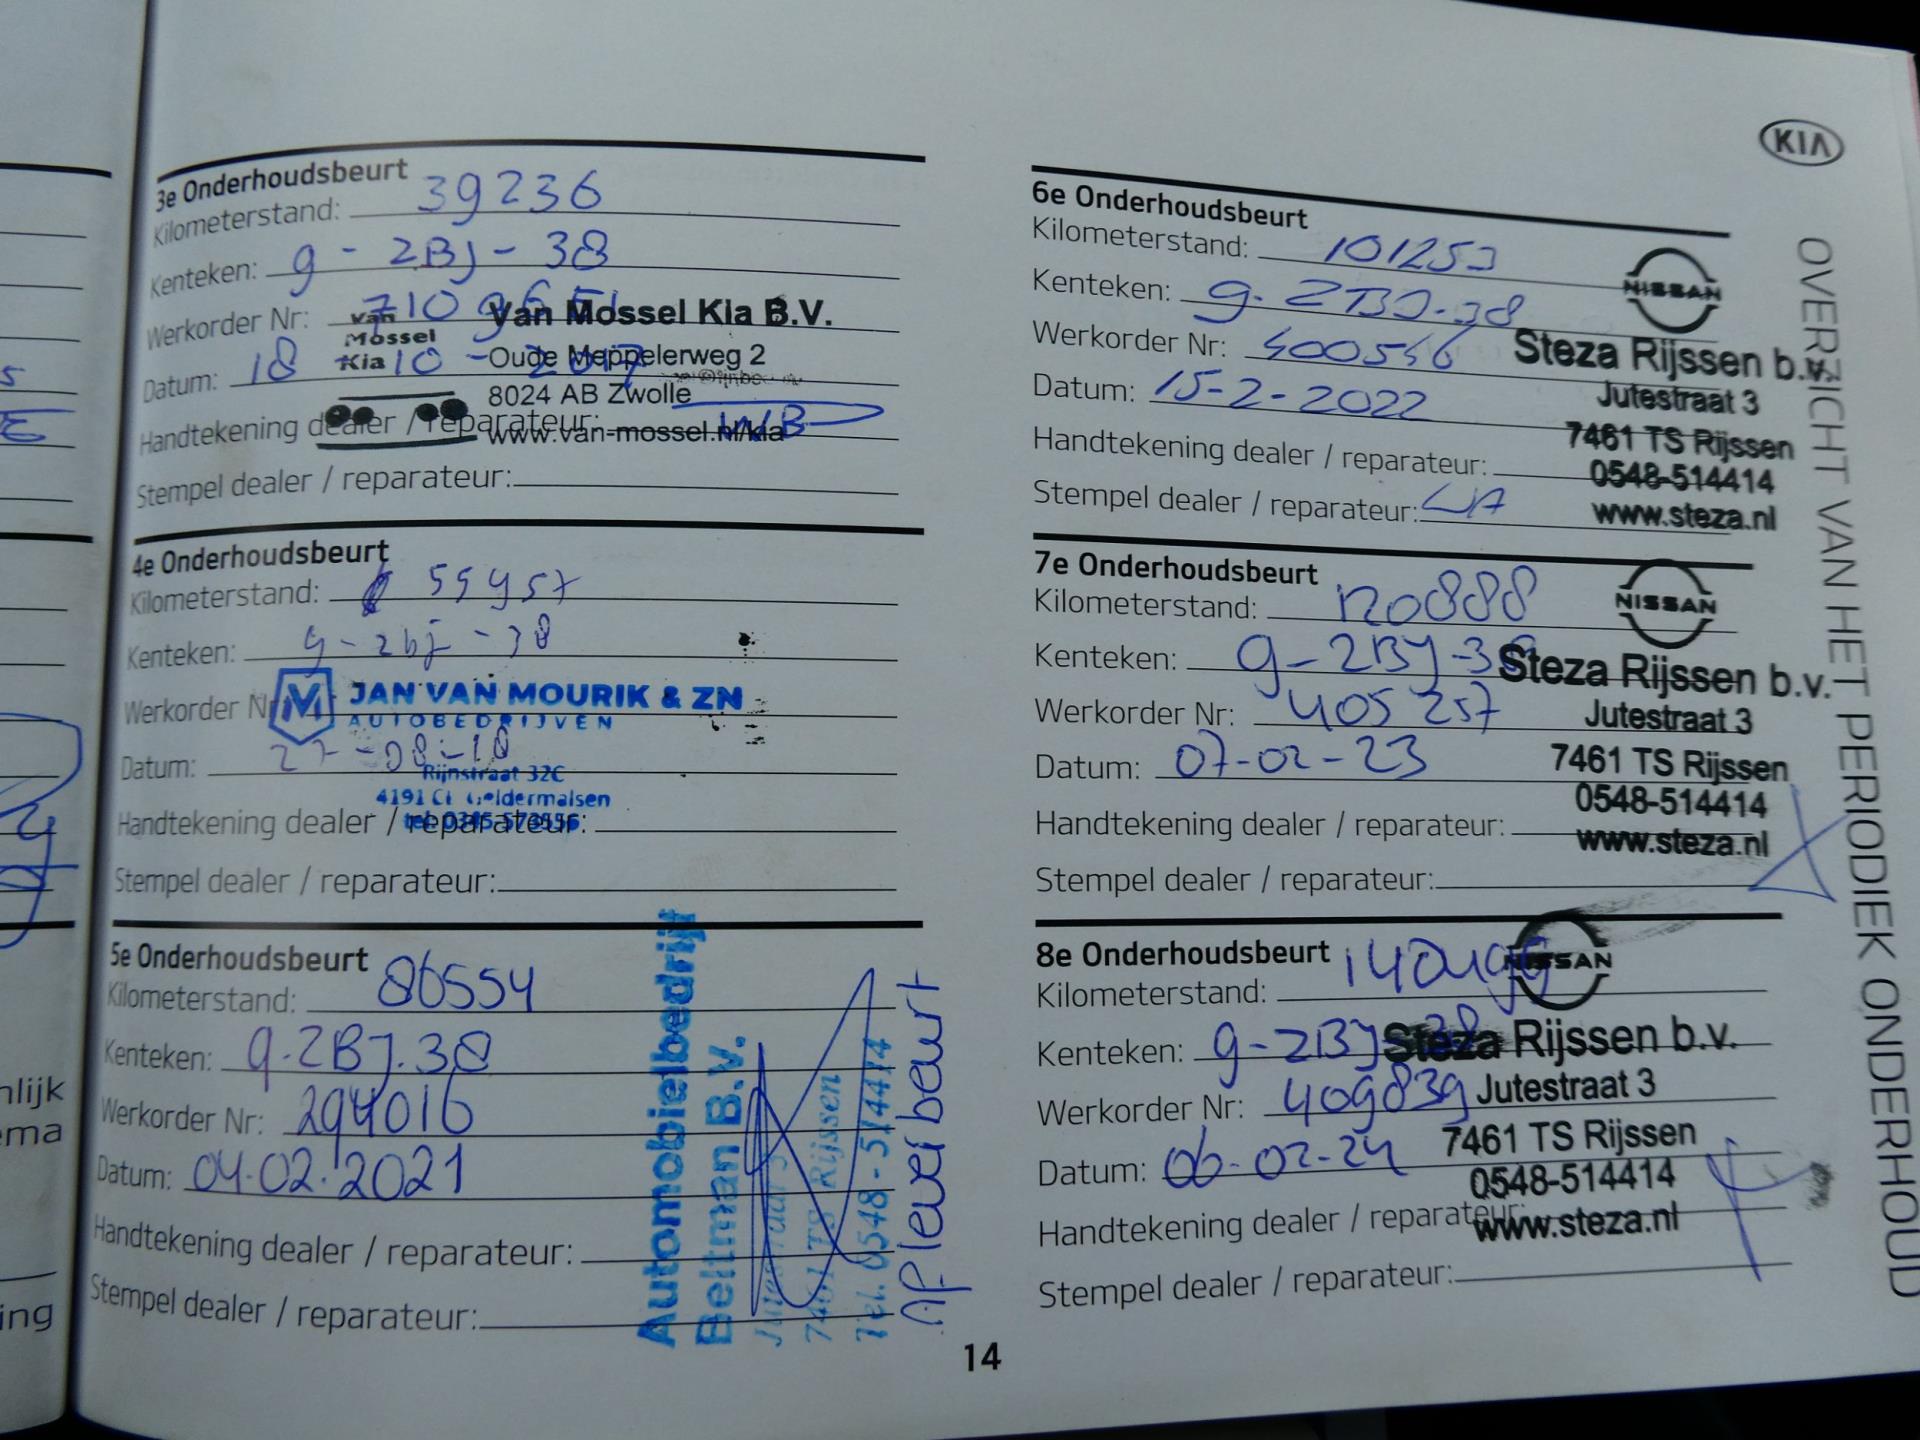 KIA
OVERZICHT VAN HET PERIODIEK ONDERHOUD
3e Onderhoudsbeurt
Kilometerstand: 39236
Kenteken: g-2BJ-38
Werkorder Nr:
Datum: 18 10 - 2017
Handtekening dealer / reparateur: WB
Stempel dealer / reparateur:
Van Mossel Kia
Van Mossel Kia B.V.
Oude Meppelerweg 2
8024 AB Zwolle
www.van-mossel.nl/kia
4e Onderhoudsbeurt
Kilometerstand:
Kenteken: g-2bj-38
Werkorder Nr
Datum: 27-08-18
Handtekening dealer / reparateur:
Stempel dealer / reparateur:
M JAN VAN MOURIK & ZN
AUTOBEDRIJVEN
Rijnstraat 32C
4191 CL Geldermalsen
tel. 0345-573556
5e Onderhoudsbeurt
Kilometerstand: 86554
Kenteken: g.2BJ.38
Werkorder Nr: 294016
Datum: 04.02.2021
Handtekening dealer / reparateur:
Stempel dealer / reparateur:
Automobielbedrijf
Beltman B.V.
Jutestraat 3
7461 TS Rijssen
Tel. 0548 - 514414
afleverbeurt
6e Onderhoudsbeurt
Kilometerstand: 101253
Kenteken: g-2BJ-38
Werkorder Nr: 400556
Datum: 15-2-2022
Handtekening dealer / reparateur:
Stempel dealer / reparateur:
NISSAN
Steza Rijssen b.v.
Jutestraat 3
7461 TS Rijssen
0548-514414
www.steza.nl
7e Onderhoudsbeurt
Kilometerstand: 120888
Kenteken: g-2BJ-38
Werkorder Nr: 405257
Datum: 07-02-23
Handtekening dealer / reparateur:
Stempel dealer / reparateur:
NISSAN
Steza Rijssen b.v.
Jutestraat 3
7461 TS Rijssen
0548-514414
www.steza.nl
8e Onderhoudsbeurt
Kilometerstand: 140499
Kenteken: g-2BJ-38
Werkorder Nr: 409839
Datum: 06-02-24
Handtekening dealer / reparateur:
Stempel dealer / reparateur:
NISSAN
Steza Rijssen b.v.
Jutestraat 3
7461 TS Rijssen
0548-514414
www.steza.nl
14
nlijk
ema
ing